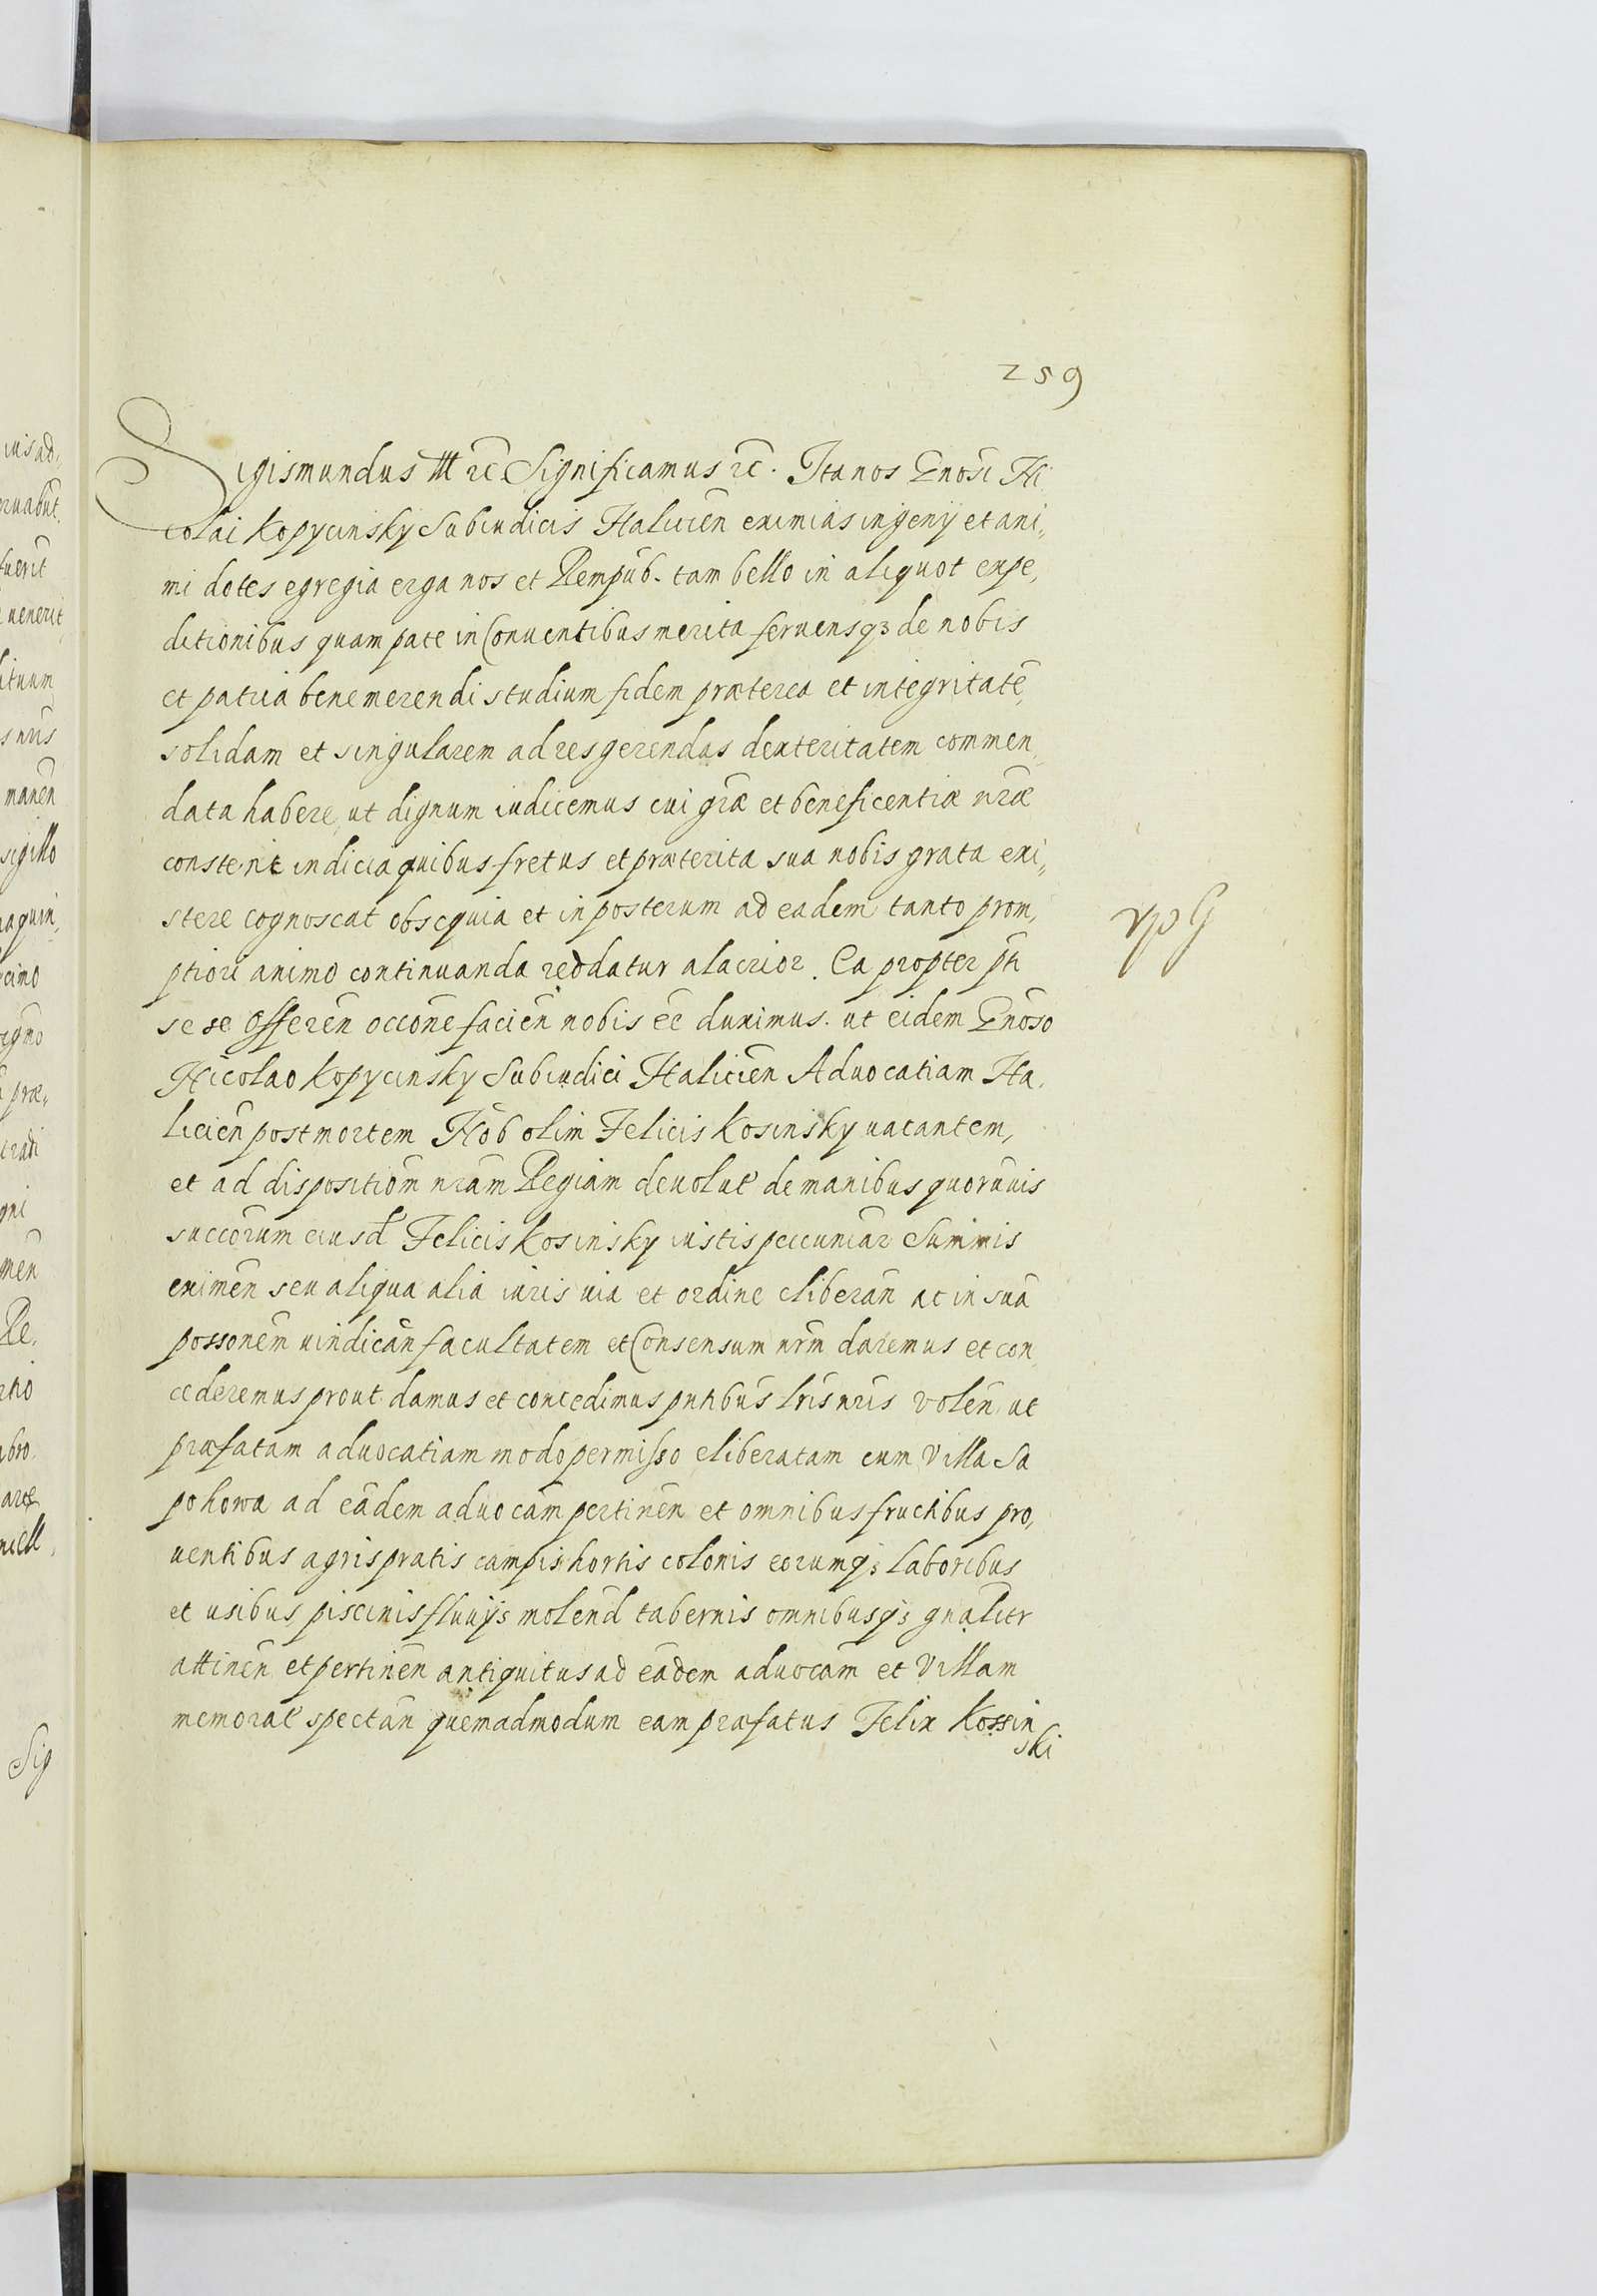 259
Sigismundus III etc Significamus etc. Ita nos Gnosi Ni
colai Kopycinsky Subiudicis Halicien eximias ingenij et ani,,
mi dotes egregia erga nos et Rempub. tam bello in aliquot expe,
ditionibus quam pace in Conventibus merita fervensq3 de nobis
et patria benemerendi studium fidem præterea et integritatē,
solidam et singularem ad res gerendas dexteritatem commen,
data habere, ut dignum iudicemus cui grāæ et beneficentiæ nrāæ
constent indicia quibus fretus et præterita sua nobis grata exi,,
stere cognoscat obsequia et in posterum ad eadem tanto prom,
ptiori animo continuanda reddatur alacrior. Ea propter pti
se se offeren occōne faciēn nobis eē duximus. ut eidem Gnōso
Nicolao Kopycinsky Subiudici Haliciēn Advocatiam Ha,
liciēn post mortem Nōb olim Felicis Kosinsky vacantem,
et ad dispositiōm nrām Regiam devolut de manibus quorūvis
succōrum eiusd Felicis Kosinsky iustis peccuniar Summis
eximēn seu aliqua alia iuris via et ordine eliberān ac in suā
possonēm vindicān facultatem et Consensum nrm daremus et con
cederemus prout damus et concedimus pntibus lris nris volēn ut
præfatam advocatiam modo permisso eliberatam cum Villa Sa
pohowa ad eādem advocām pertinēn et omnibus fructibus pro,
ventibus agris pratis campis hortis colonis eorumq3 laboribus
et usibus piscinis fluvijs molēnd tabernis omnibusq3 gnālitr
attinēn et pertinēn antiquitus ad eādem advocām et Villam
memorat spectān quemadmodum eam præfatus Felix Kossin
ski